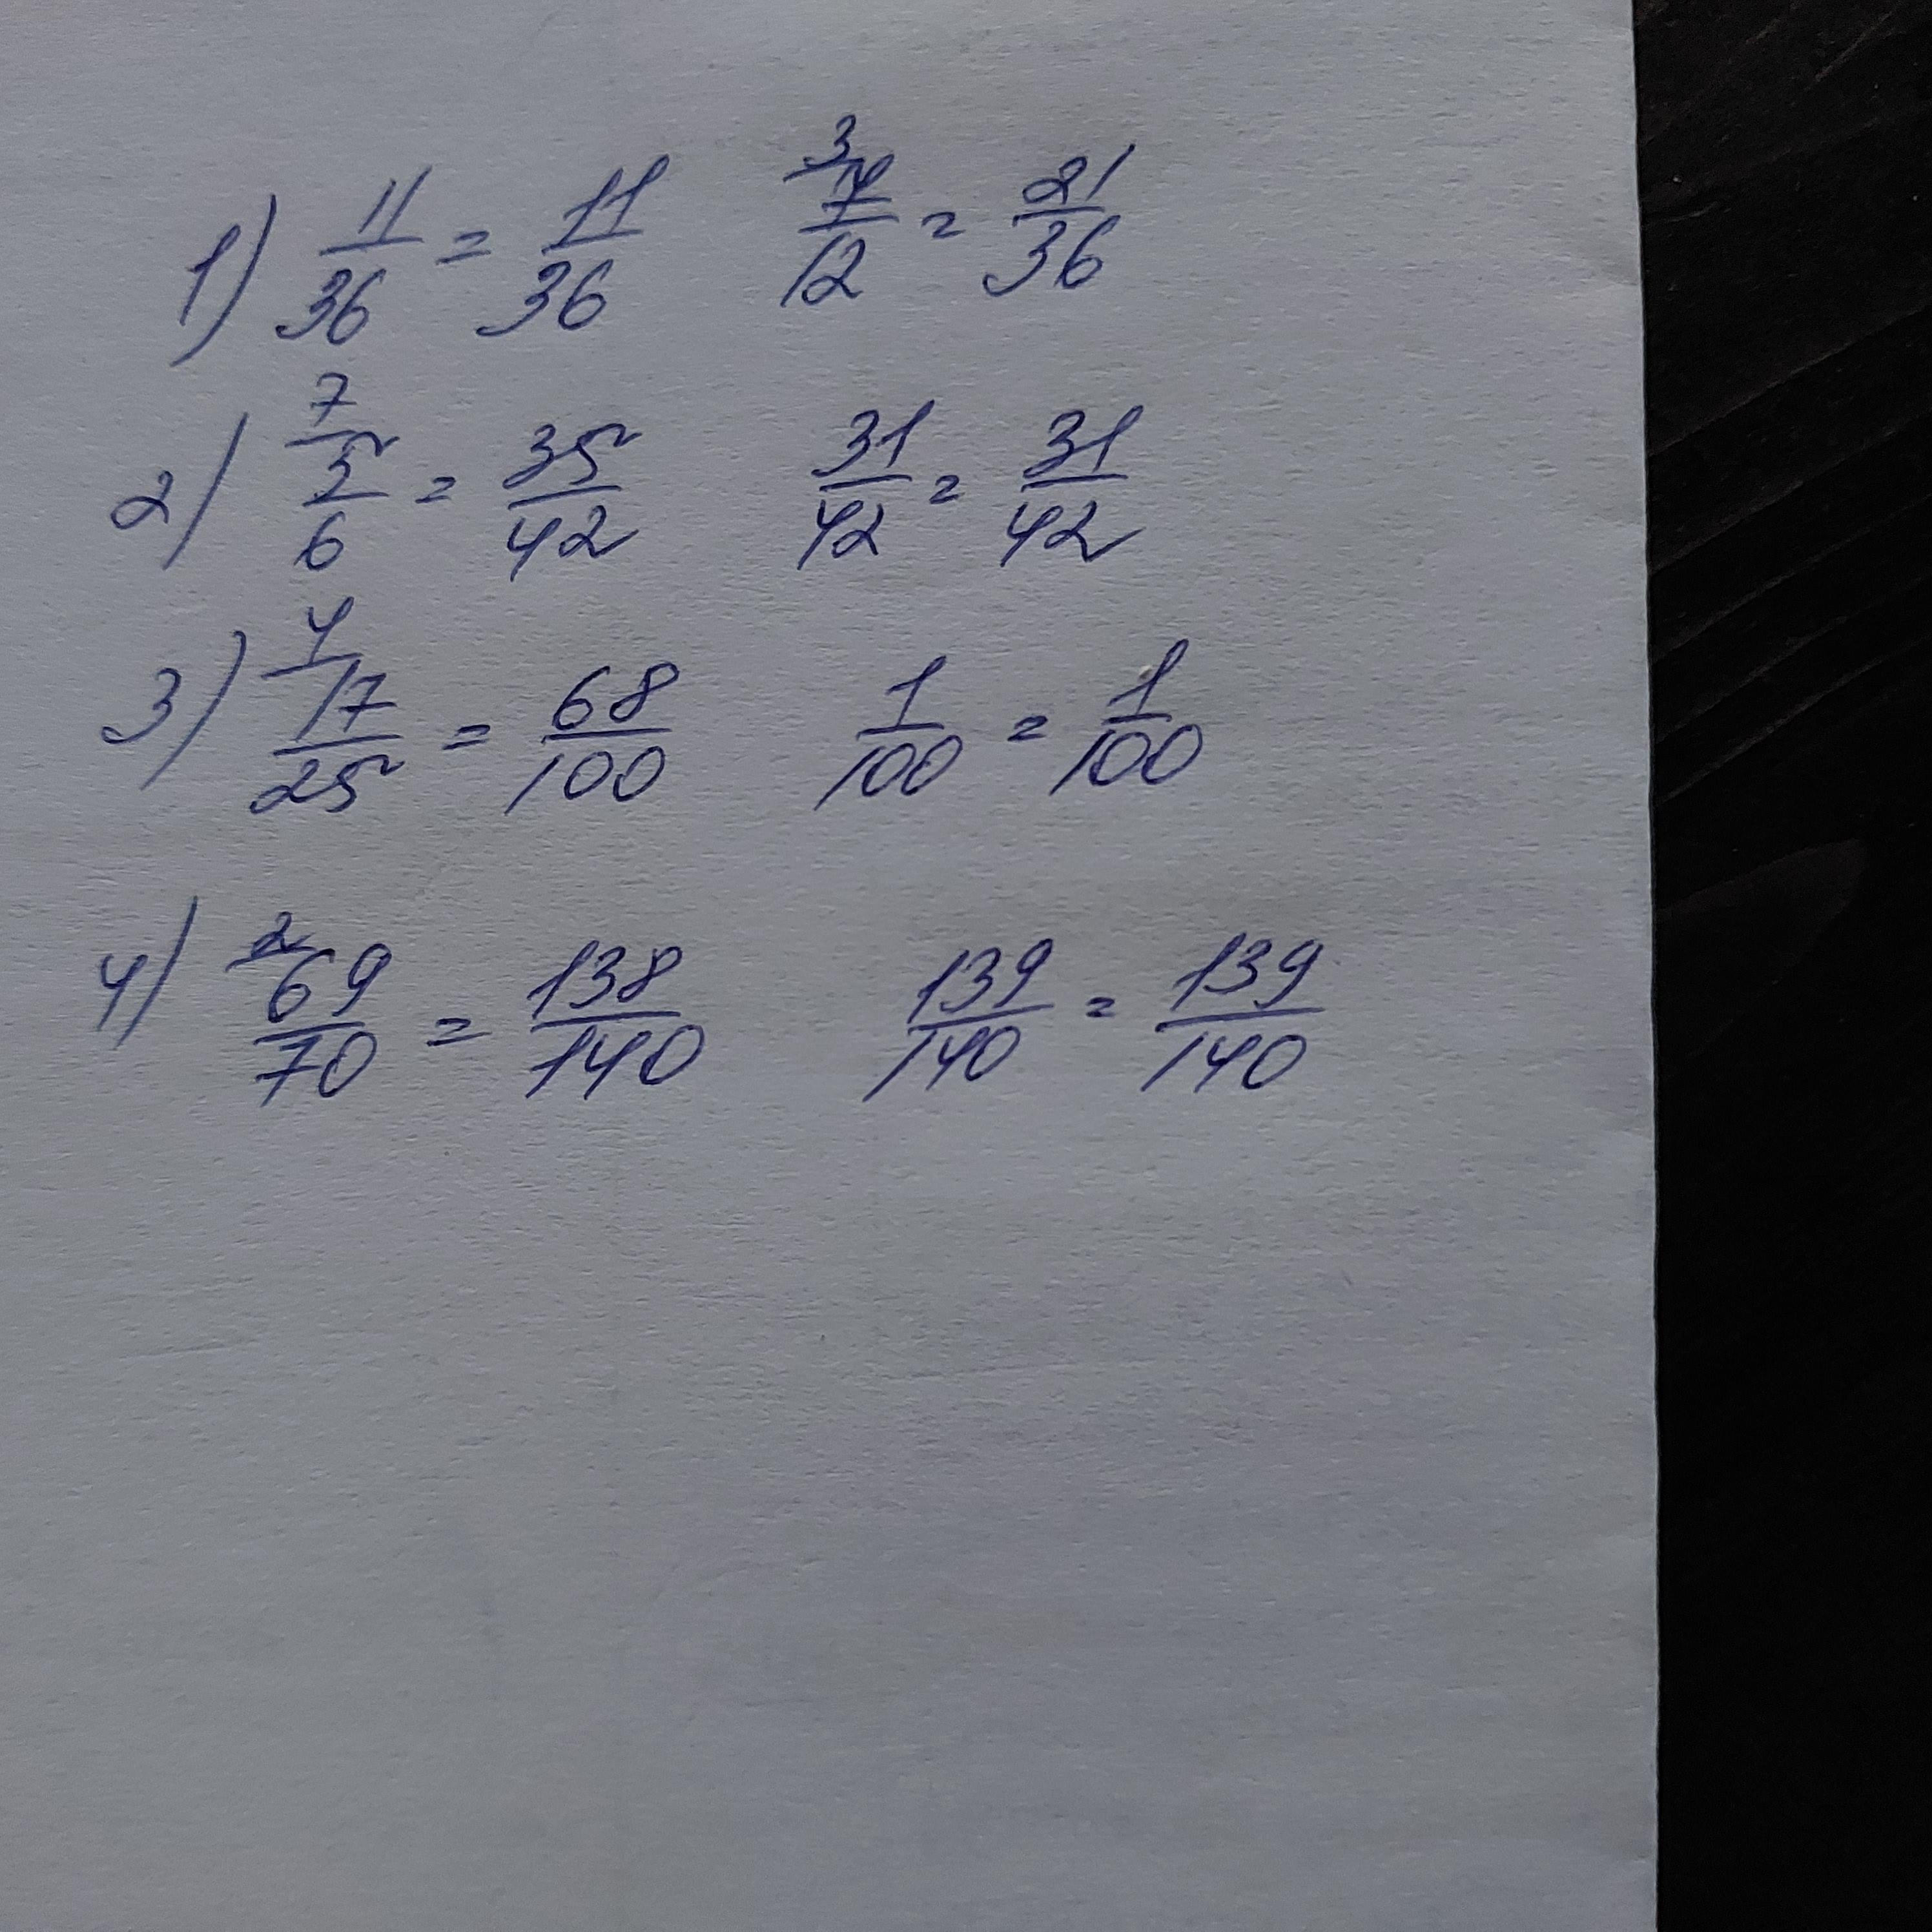 1) 11/36 = 11/36 3/ 7/12 = 21/36
2) 7/ 5/6 = 35/42 31/42 = 31/42
3) 4/ 17/25 = 68/100 1/100 = 1/100
4) 2/ 69/70 = 138/140 139/140 = 139/140